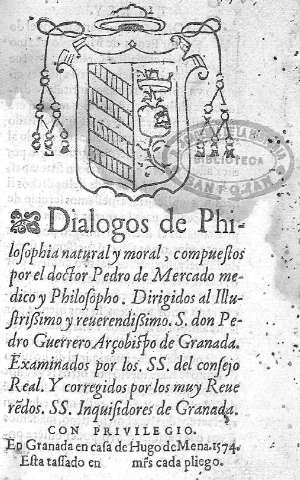 BIBLIOTECA
Dialogos de Phi-
losophia natural y moral, compuestos
por el doctor Pedro de Mercado me
dico y Philosopho. Dirigidos al Illu-
strissimo y reuerendissimo. S. don Pe
dro Guerrero Arçobispo de Granada.
Examinados por los. SS. del consejo
Real. Y corregidos por los muy Reue
rēdos. SS. Inquisidores de Granada.
CON PRIVILEGIO.
En Granada en casa de Hugo de Mena. 1574.
Esta tassado en mrs cada pliego.